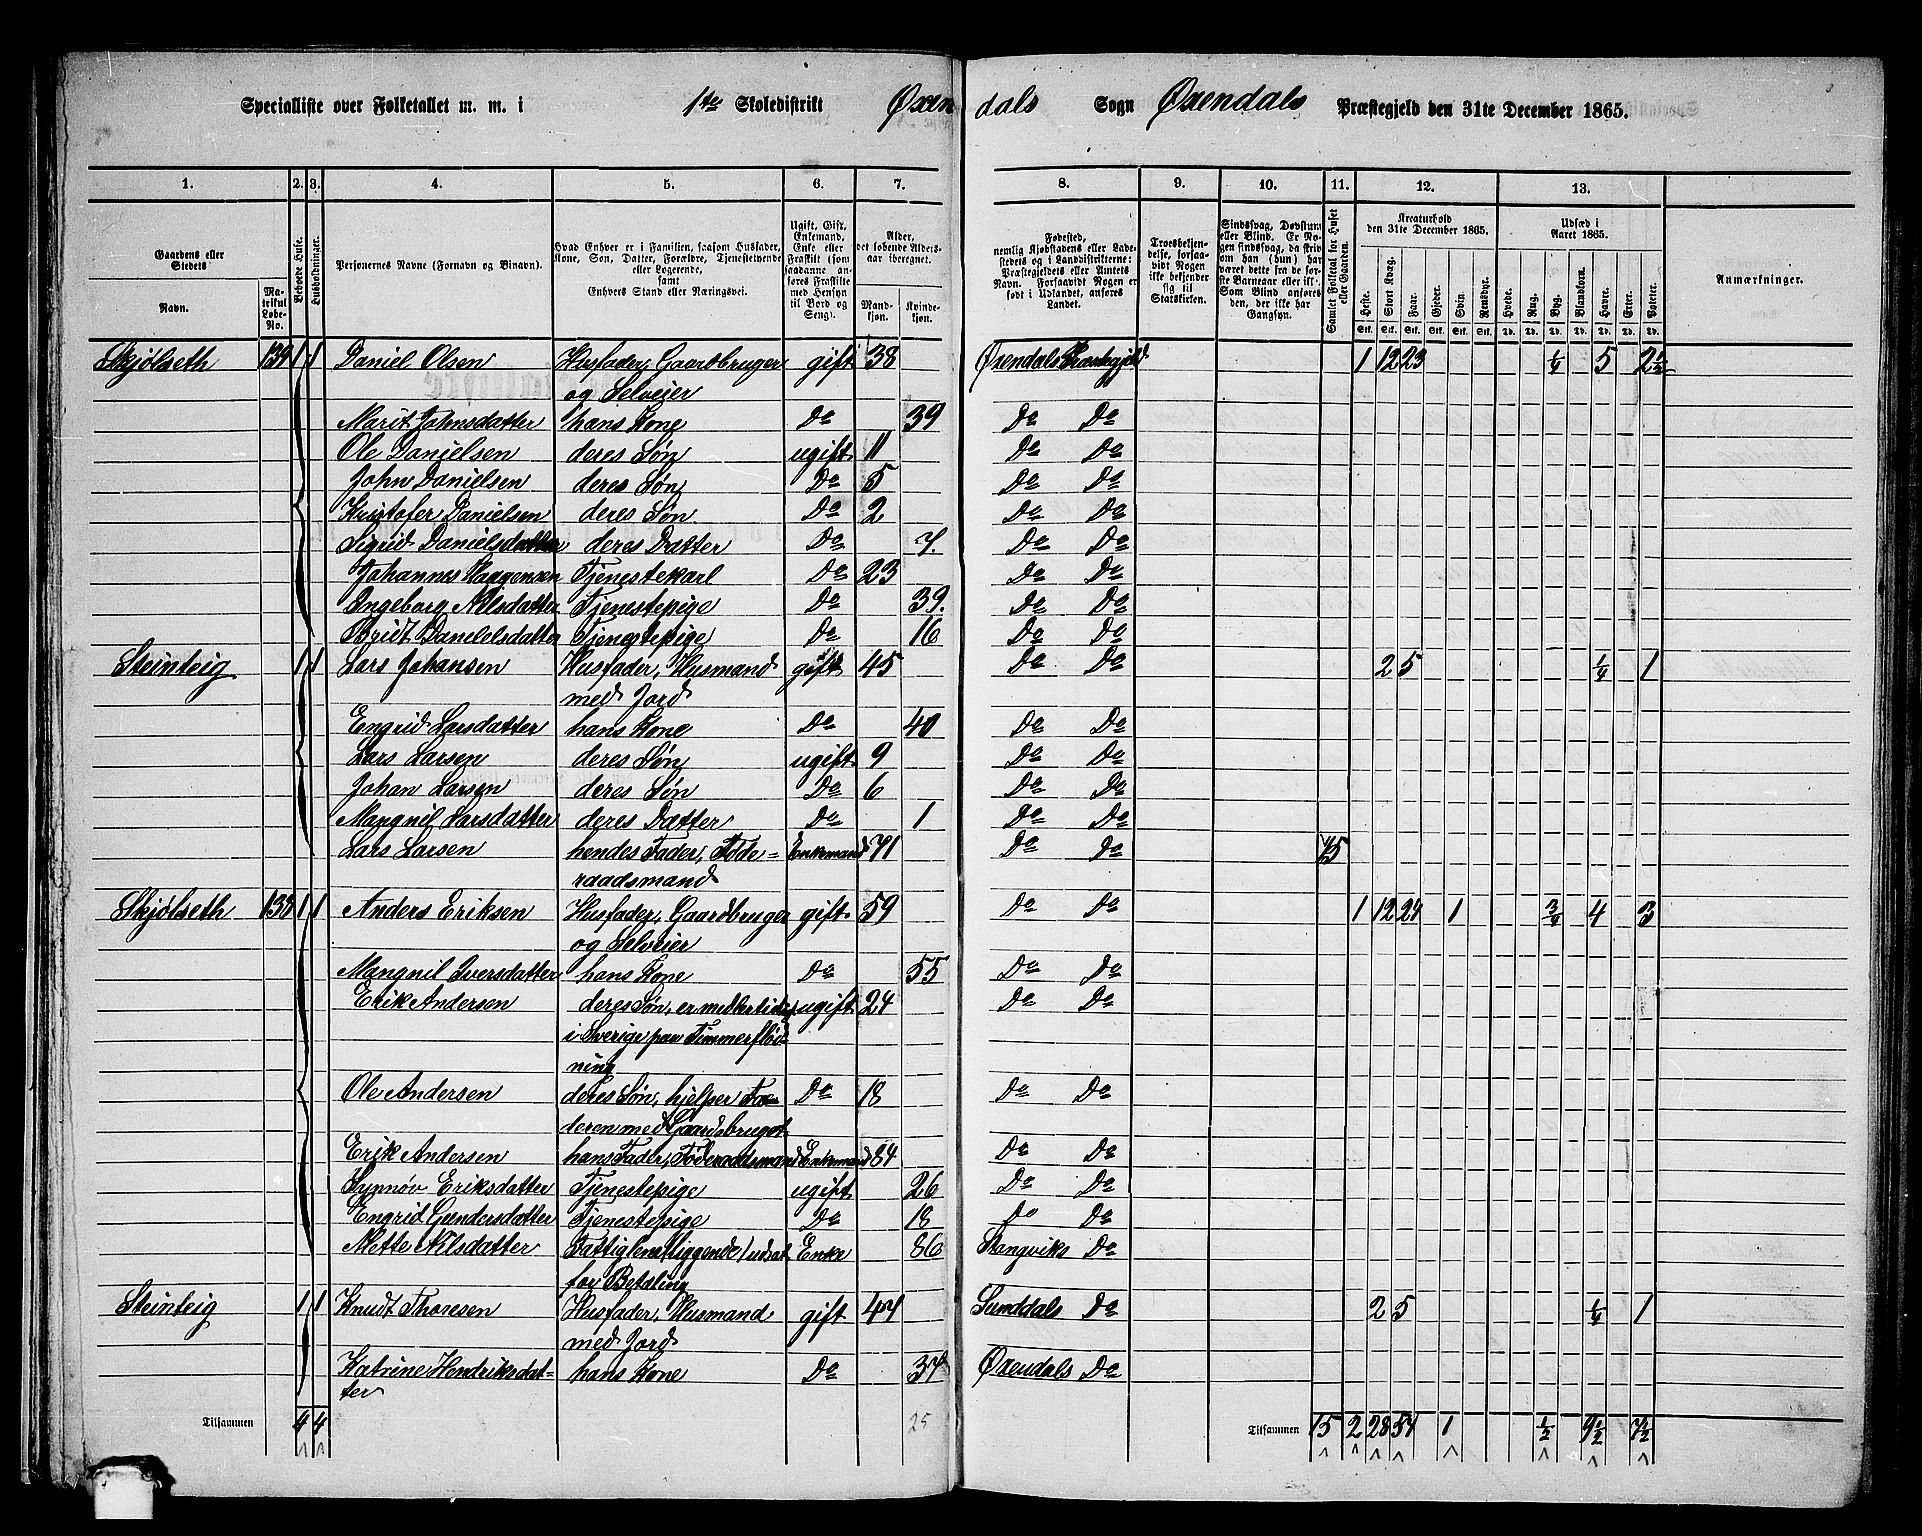 Specialliste over Folketallet m. m. i 1ste Skoledistrikt Øxendals Sogn Øxendals Præstegjeld den 31te December 1865.
1. 2. 3. 4. 5. 6. 7. 8. 9. 10. 11. 12. 13.
Gaardens eller Stedets
Navn.
Matrikul Løbe-No.
Beboede Huse.
Husholdninger.
Personernes Navne (Fornavn og Binavn).
Hvad Enhver er i Familien, saasom Husfader, Kone, Søn, Datter, Forældre, Tjenestetyende eller Logerende, samt Enhvers Stand eller Næringsvei.
Ugift, Gift, Enkemand, Enke eller Fraskilt (som saadanne anføres Fraskilte med Hensyn til Bord og Seng).
Alder, det løbende Alders-aar iberegnet.
Mandkjøn.
Kvindekjøn.
Fødested, nemlig Kjøbstadens eller Ladestedets og i Landdistrikterne: Præstegjeldets eller Amtets Navn. Forsaavidt Nogen er født i Udlandet, anføres Landet.
Troesbekjendelse, forsaavidt Nogen ikke bekjender sig til Statskirken.
Samlet Folketal for Huset eller Gaarden.
Kreaturhold den 31te December 1865.
Heste. Stort Kvæg. Faar. Gjeder. Svin. Rensdyr.
Udsæd i Aaret 1865.
Hvede. Rug. Byg. Blandkorn. Havre. Erter. Poteter.
Anmærkninger.
Skjølseth 139 1 1 Daniel Olsen Husfader, Gaardbruger gift 38 Øxendals Præstegjeld 1 12 23 1/4 5 2 1/2
og Selveier
Marit Johnsdatter hans Kone Do 39 Do Do
Ole Danielsen deres Søn ugift 11 Do Do
John Danielsen deres Søn Do 5 Do Do
Kristofer Danielsen deres Søn Do 2 Do Do
Sigrid Danielsdatter deres Datter Do 7 Do Do
Johannes Haagensen Tjenestekarl Do 23 Do Do
Ingeborg Nilsdatter Tjenestepige Do 39 Do Do
Danielsdatter Tjenestepige Do 16 Do Do
Steinteig 1 1 Lars Johansen Husfader, Husmand gift 45 Do Do 2 5 1/4 1
med Jord
Engrid Larsdatter hans Kone Do 40 Do Do
Lars Larsen deres Søn ugift 9 Do Do
Johan Larsen deres Søn Do 6 Do Do
Mangnil Larsdatter deres Datter Do 1 Do Do
Lars Larsen hendes Fader, Føde= Enkemand 71 Do Do 15
raadsmand
Skjølseth 138 1 1 Anders Eriksen Husfader, Gaardbruger gift 59 Do Do 1 12 24 1 3/4 4 3
og Selveier
Mangnil Iversdatter hans Kone Do 55 Do Do
Erik Andersen deres Søn, er midlertidig ugift 24 Do Do
i Sverige paa Tømmerflød-
ning
Ole Andersen deres Søn, hjelper Fa= Do 18 Do Do
deren med Gaardsbruget
Erik Andersen hans Fader, Føderaadsmand Enkemand 84 Do Do
Synnøv Eriksdatter Tjenestepige ugift 26 Do Do
Engrid Gundersdatter Tjenestepige Do 18 Do Do
Mette Nilsdatter Fattiglemsliggende udsat Enke 86 Stangviks Do
for Betaling
Steinteig 1 1 Knudt Thoresen Husfader, Husmand gift 44 Sunddals Do 2 5 1/4 1
med Jord
Katrine Hendriksdat= hans Kone Do 37 Øxendals Do
ter
Tilsammen 4 4 25 Tilsammen 15 2 28 54 1 1/2 9 1/2 7 1/2